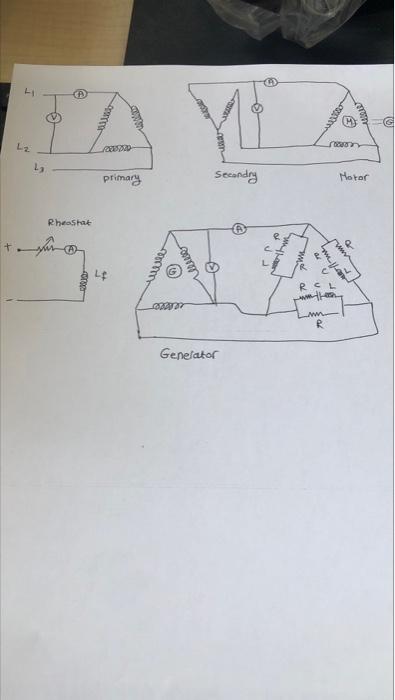 L1
A
V
L2
L3
primary
A
V
Secondry
M
G
Motor
Rheostat
+
A
Lf
-
G
V
A
R
C
L
R
R
R
C
L
R C L
R
Generator